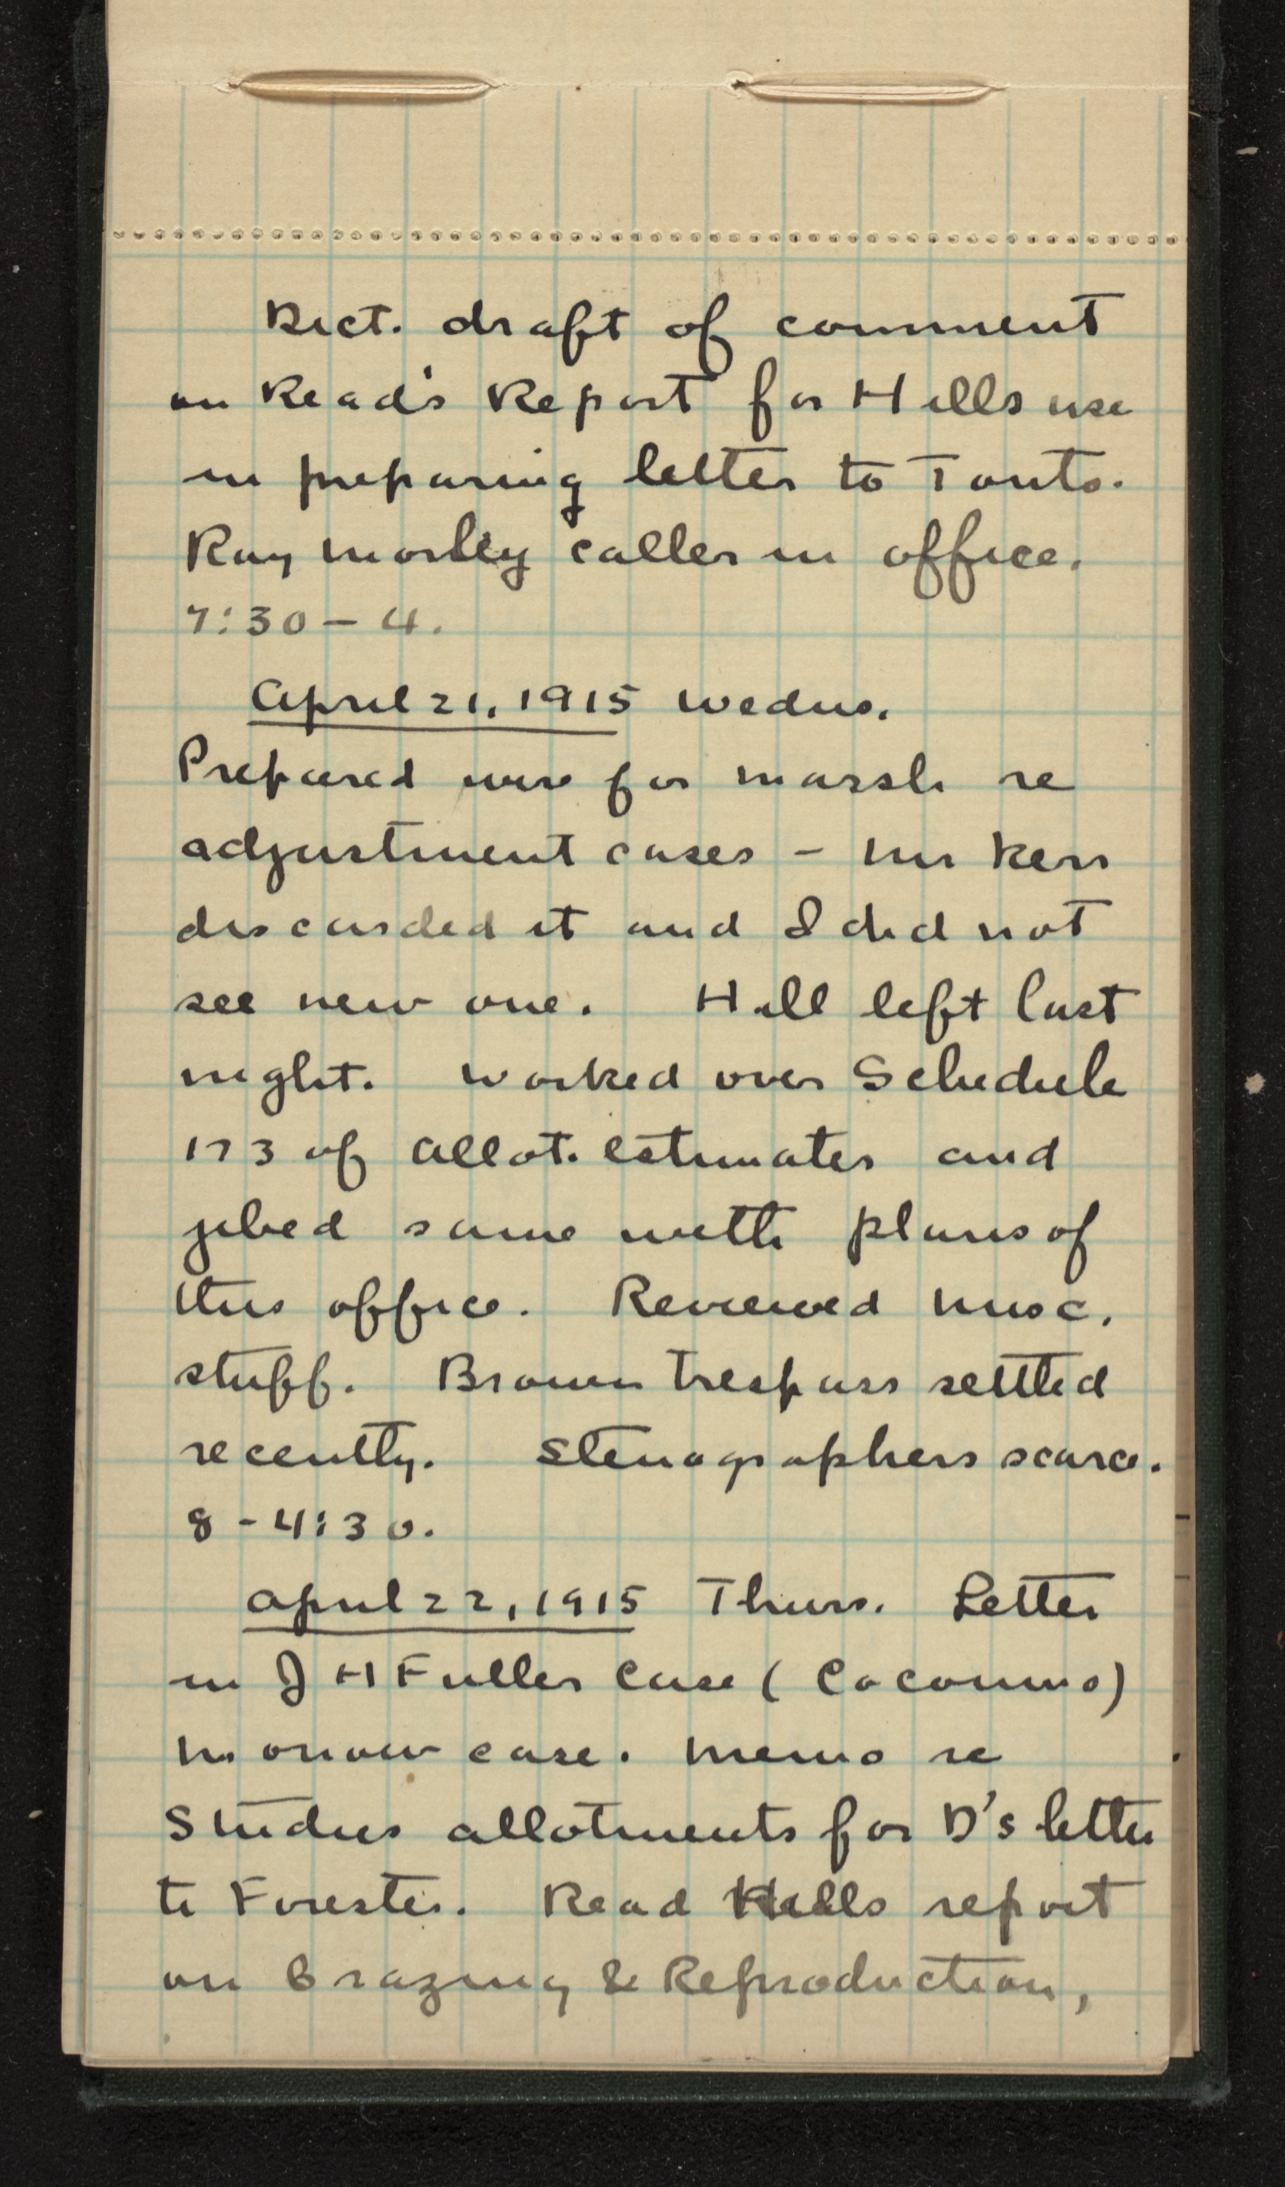 Dict. draft of comment
on Read's Report for Hills use
in preparing letter to Tonto.
Ray Morley caller in office.
7:30 – 4.
April 21, 1915 Wednes.
Prepared wire for Marsh re
adjustment cases – Mr Kerr
discarded it and I did not
see new one. Hill left last
night. Worked over Schedule
173 of allot. estimates and
jibed same with plans of
this office. Reviewed misc.
stuff. Brown trespass settled
recently. Stenographers scarce.
8 - 4:30.
April 22, 1915 Thurs. Letter
in J H Fuller Case (Coconino)
case. Memo re
Studies allotments for D's letter
to Forester. Read Hills report
on Grazing & Reproduction,